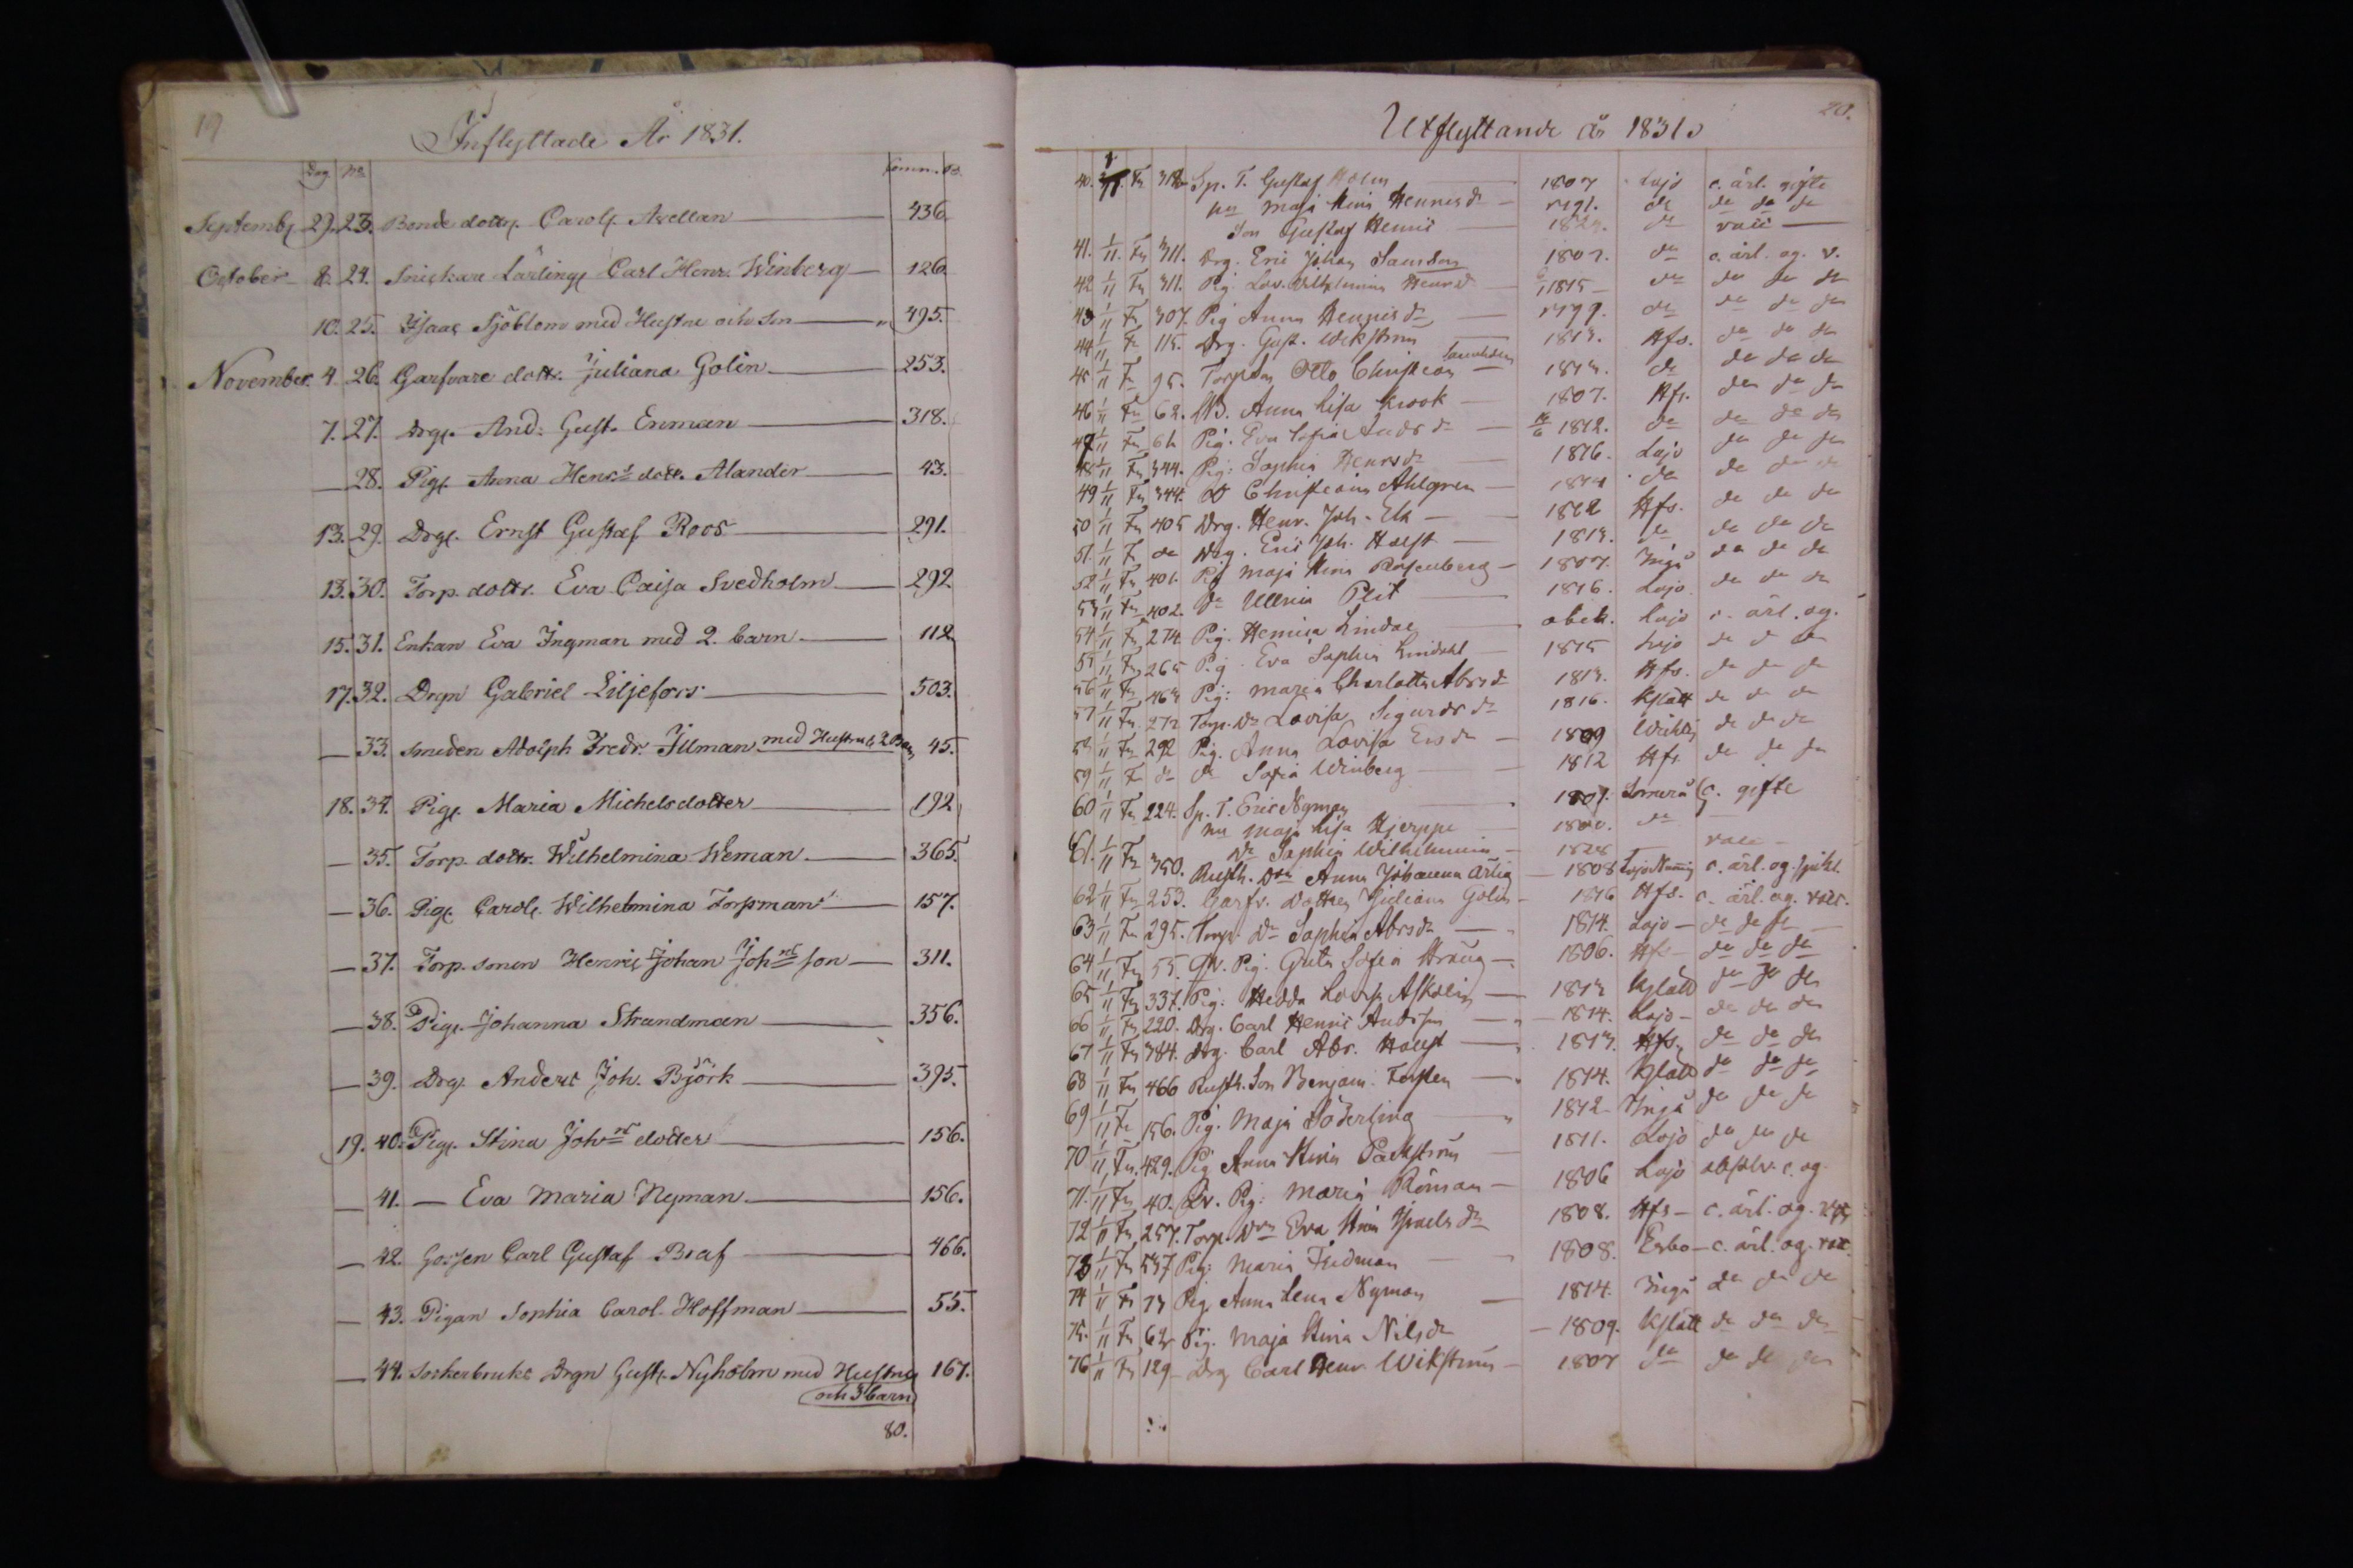 19
Inflyttade År 1831.
Dag No Comm. B.
Septembr 29. 23. Bonde dottr. Carol. Avellan 436
October 8. 24. Snickare Lärling Carl Henr. Winberg 126
10. 25. Isaac Sjöblom med Hustru och Son 495.
November 4 26. Garfvare dottr. Juliana Golin 253.
7. 27. Drg. And. Gust. Enman 318.
28. Pig. Anna Henrs dott. Alander 43.
13. 29. Drg. Ernst Gustaf Roos 291.
13. 30. Torp. dottr. Eva Caisa Svedholm 292
15. 31. Enkan Eva Ingman med 2. barn 112
17. 32. Drgn Gabriel Liljefors 503.
33. smeden Adolph Fredr. Illman med Hustru & 2 Barn 45.
18. 34. Pig. Maria Michelsdotter 192
35. Torp. dottr. Wilhelmina Weman 365.
36. Pig. Carol. Wilhelmina Torpman 157.
37. Torp. sonen Henric Johan Johns son 311.
38. Pig. Johanna Strandman 356.
39. Drg. Anders Joh. Björk 395.
19. 40. Pig. Stina Johns dotter 156.
41. — Eva Maria Nyman 156.
42. Gossen Carl Gustaf Braf 466.
43. Pigan Sophia Carol. Hoffman 55.
44. Sockerbruks Drgn Gust. Nyholm med Hustru 167.
och 3 barn
80.
20.
Utflyttande år 1831.
40. 1/11 Fr 318 Sp. T. Gustaf Holm 1807 Lojo c. ärl. gifte
hu Maja Stina Henricsdr 1791. do do do do
Son Gustaf Henric do vacc
41. 1/11 Fr 311. Drg. Eric Johan Samson 1807. do c. ärl. og. v.
42 1/11 Fr 311. Pig. Lov. Wilhelmina Henrsdr 1815 do do do do
43 1/11 Fr 307. Pig Anna Henricsdr 1799. do do do do
44 1/11 Fr 115. Drg. Gust. Wikström 1813. Hfs. do do do
45 1/11 Fr 95. Torpson Otto Christian Samuelson 1813. do do do do
46 1/11 Fr 62. Anna Lisa Krook 1807. Hfs. do do do
47 1/11 Fr 61 Pig. Eva Sofia Andsdr 1812. do do do do
48 1/11 Fr 344. Pig: Sophia Henrsdr 1816. Lojo do do do
49 1/11 Fr 344. Do Christina Ahlgren 1814 do do do do
50 1/11 Fr 405 Drg. Henr. Joh. Ek 1812 Hfs. do do do
51. 1/11 Fr do Drg. Eric Joh. Holst 1813. do do do do
52 1/11 Fr 401. Pig Maja Stina Rosenberg 1807. Ingå do do do
53 1/11 Fr 402. Do Ullrica Plit 1816. Lojo do do do
54 1/11 Fr 274. Pig. Henrica Lindal obek. Lojo c. ärl. og.
55 1/11 Fr 265 Pig. Eva Sophia Lindahl 1815 Lojo do do do
56 1/11 Fr 463 Pig: Maria Charlotta Abrsdr 1813. Hfs. do do do
57 1/11 Fr 272 Torp. Dr Lovisa Sigurdsdr 1816. Kslätt do do do
58 1/11 Fr 292 Pig. Anna Lovisa Ersdr 1809 Wichtis do do do
59 1/11 Fr do do Sofia Winberg 1812 Hfs. do do do
60 1/11 Fr 224. Sp. T. Eric Nyman 1801. Somerå c. gifte
hu Maja Lisa Hjerppe 1800. do
Dr Sophia Wilhelmina 1828 vacc
61. 1/11 Fr 350. Rusth. Dr Anna Johanna Ärlig 1808 Lojo Nummis c. ärl. og.
62 1/11 Fr 253. Garfv. Dotter Juliana Golin 1816 Hfs. c. ärl. og. vacc.
63 1/11 Fr 295. Torp. Dr Sophia Abrsdr 1814. Lojo do do do
64 1/11 Fr 55. Qv. Pig. Greta Sofia Strang 1806. Hfs do do do
65 1/11 Fr 337. Pig. Hedda Lovis. Askolin 1813 Kslätt do do do
66 1/11 Fr 220. Drg. Carl Henric Andsson 1814. Lojo do do do
67 1/11 Fr 384. Drg. Carl Abr. Holst 1813. Hfs. do do do
68 1/11 Fr 466 Rusth. Son Benjam. Forsten 1814. Kslätt do do do
69 1/11 Fr 156. Pig. Maja Söderling 1812 Ingå do do do
70 1/11 Fr. 429. Pig Anna Stina Packström 1811. Lojo do do do
71. 1/11 Fr 40. Qv. Pig: Maria Röman 1806 Lojo absolv. c. og
72 1/11 Fr 257. Torp. Dr Eva Stina Israelsdr 1808. Hfs c. ärl. og.
73 1/11 Fr 537 Pig: Maria Fridman 1808. Esbo c. ärl. og. vac.
74 1/11 Fr 73 Pig Anna Lena Nyman 1814. Ingå do do do
75. 1/11 Fr 62 Pig. Maja Stina Nilsdr 1809. Kslätt do do do
76 1/11 Fr 129 Drg Carl Henr. Wikström 1807 do do do do